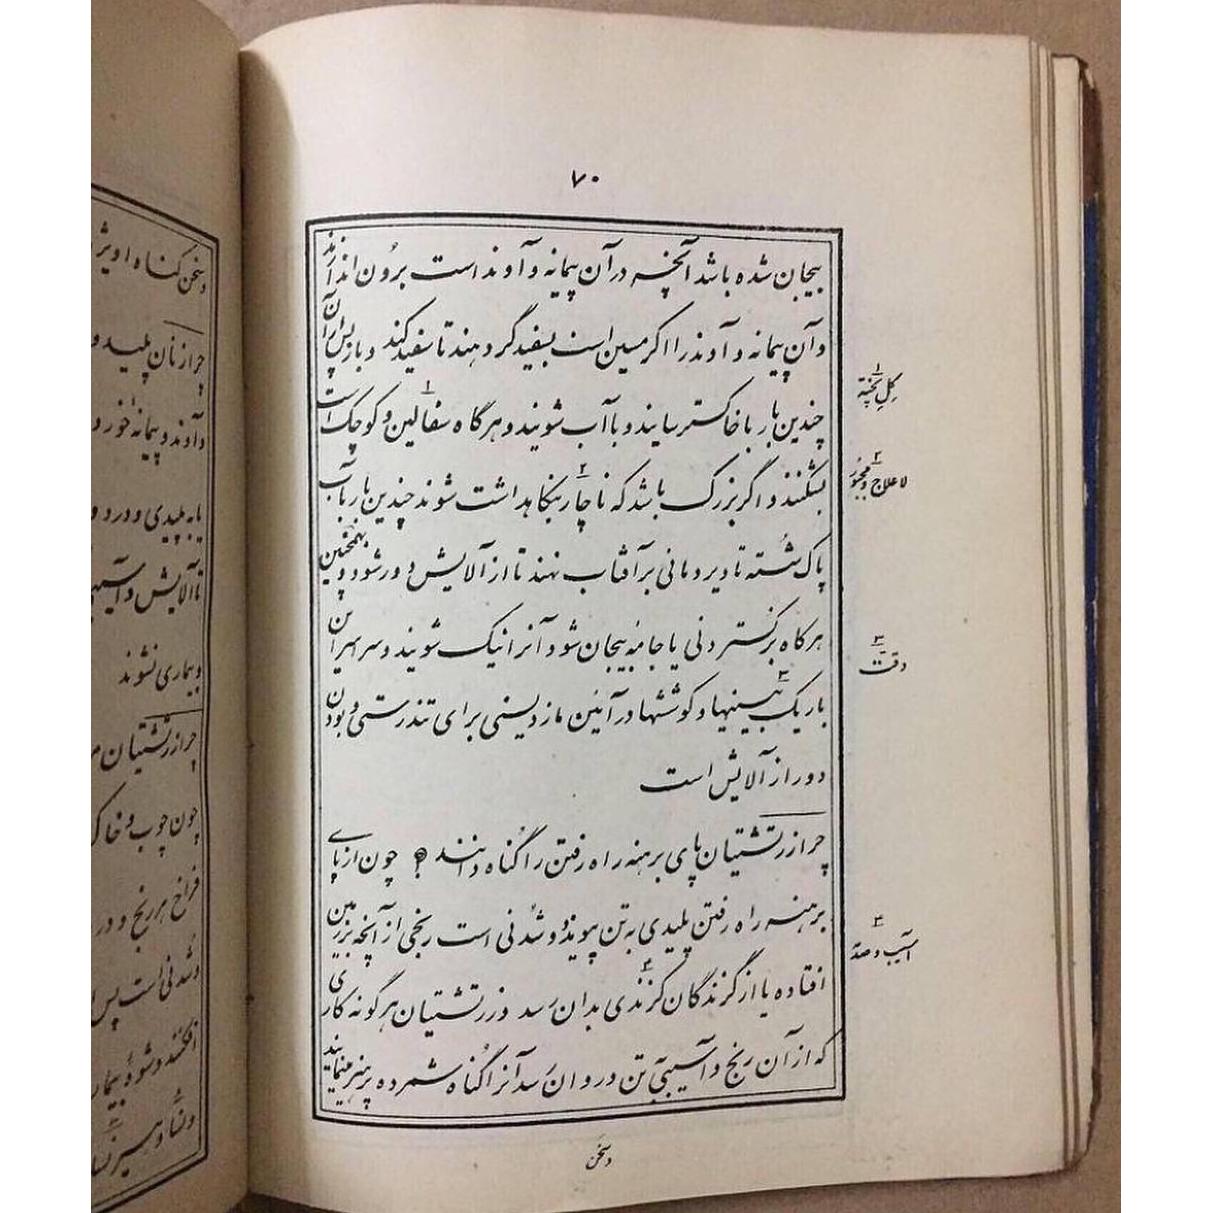 ۷۰
بیجان شده باشد آنچه در آن پیمانه و آوند است برون اندازند
و آن پیمانه و آوند را اگر مسین است بسفیدگر دهند تا سفید کند و باز پس از آن
چندین بار با خاکستر سایند و با آب شویند و هرگاه سفالین و کوچک است
بشکنند و اگر بزرگ باشد که ناچار بنگاهداشت شوند چندین بار بآب
پاک شسته تا دیر زمانی بر آفتاب نهند تا از آلایش دور شود و همچنین
هرگاه بر گستردنی یا جامهٔ بیجان شود آنرا نیک شویند و سراسر این
باریک بینیها و کوششها در آئین مازدیسنی برای تندرستی و بودن
دور از آلایش است
چرا زرتشتیان پای برهنه راه رفتن را گناه دانند ؟ چون از پای
برهنه راه رفتن پلیدی به تن پیوندد و شدنی است رنجی از آنچه بر زمین
افتاده یا از گزندگان گزندی بدان رسد و زرتشتیان هر گونه کاری
که از آن رنج و آسیبی بتن و روان رسد آنرا گناه شمرده پرهیز مینمایند
و سخن
۱
گل پخته
۲
لاعلاج و مجبور
۳
دقت
۴
آسیب و صدمه
و سخن گناه
چرا زنان پلید و
و آوند و پیمانه خورد و
یابد پلیدی و درد و
تا آلایش و
و بیماری نشوند
چرا زرتشتیان
چون چوب و
فراخ هر رنج و در
و شدنی است پس
افکنند و شوه بیمار